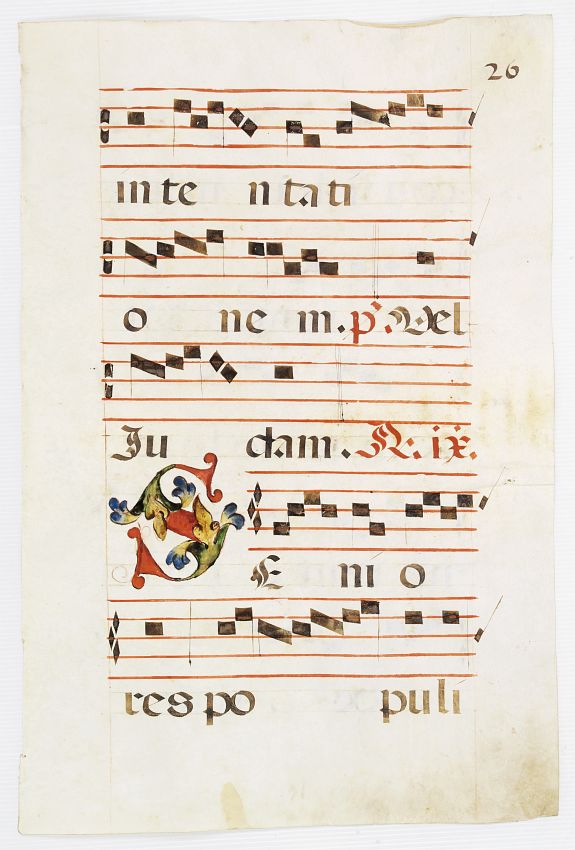 26
in te n ta ti
o ne m. ps. Vel
Ju dam. R. ix.
S E ni o
res po puli